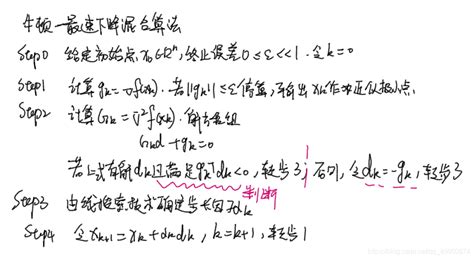 牛顿—最速下降混合算法
Step0 给定初始点 x₀∈Rⁿ, 终止误差 0≤ε<<1. 令 k=0
Step1 计算 gₖ=∇f(xₖ). 若||gₖ||≤ε 停算, 输出 xₖ 作为近似极小点.
Step2 计算 Gₖ=∇²f(xₖ). 解方程组
Gₖd+gₖ=0
若上式有解 dₖ 且满足 gₖᵀdₖ<0, 转步3; 否则, 令 dₖ=-gₖ, 转步3
判断
Step3 由线搜索技术确定步长因子 αₖ
Step4 令 xₖ₊₁=xₖ+αₖdₖ, k=k+1, 转步1